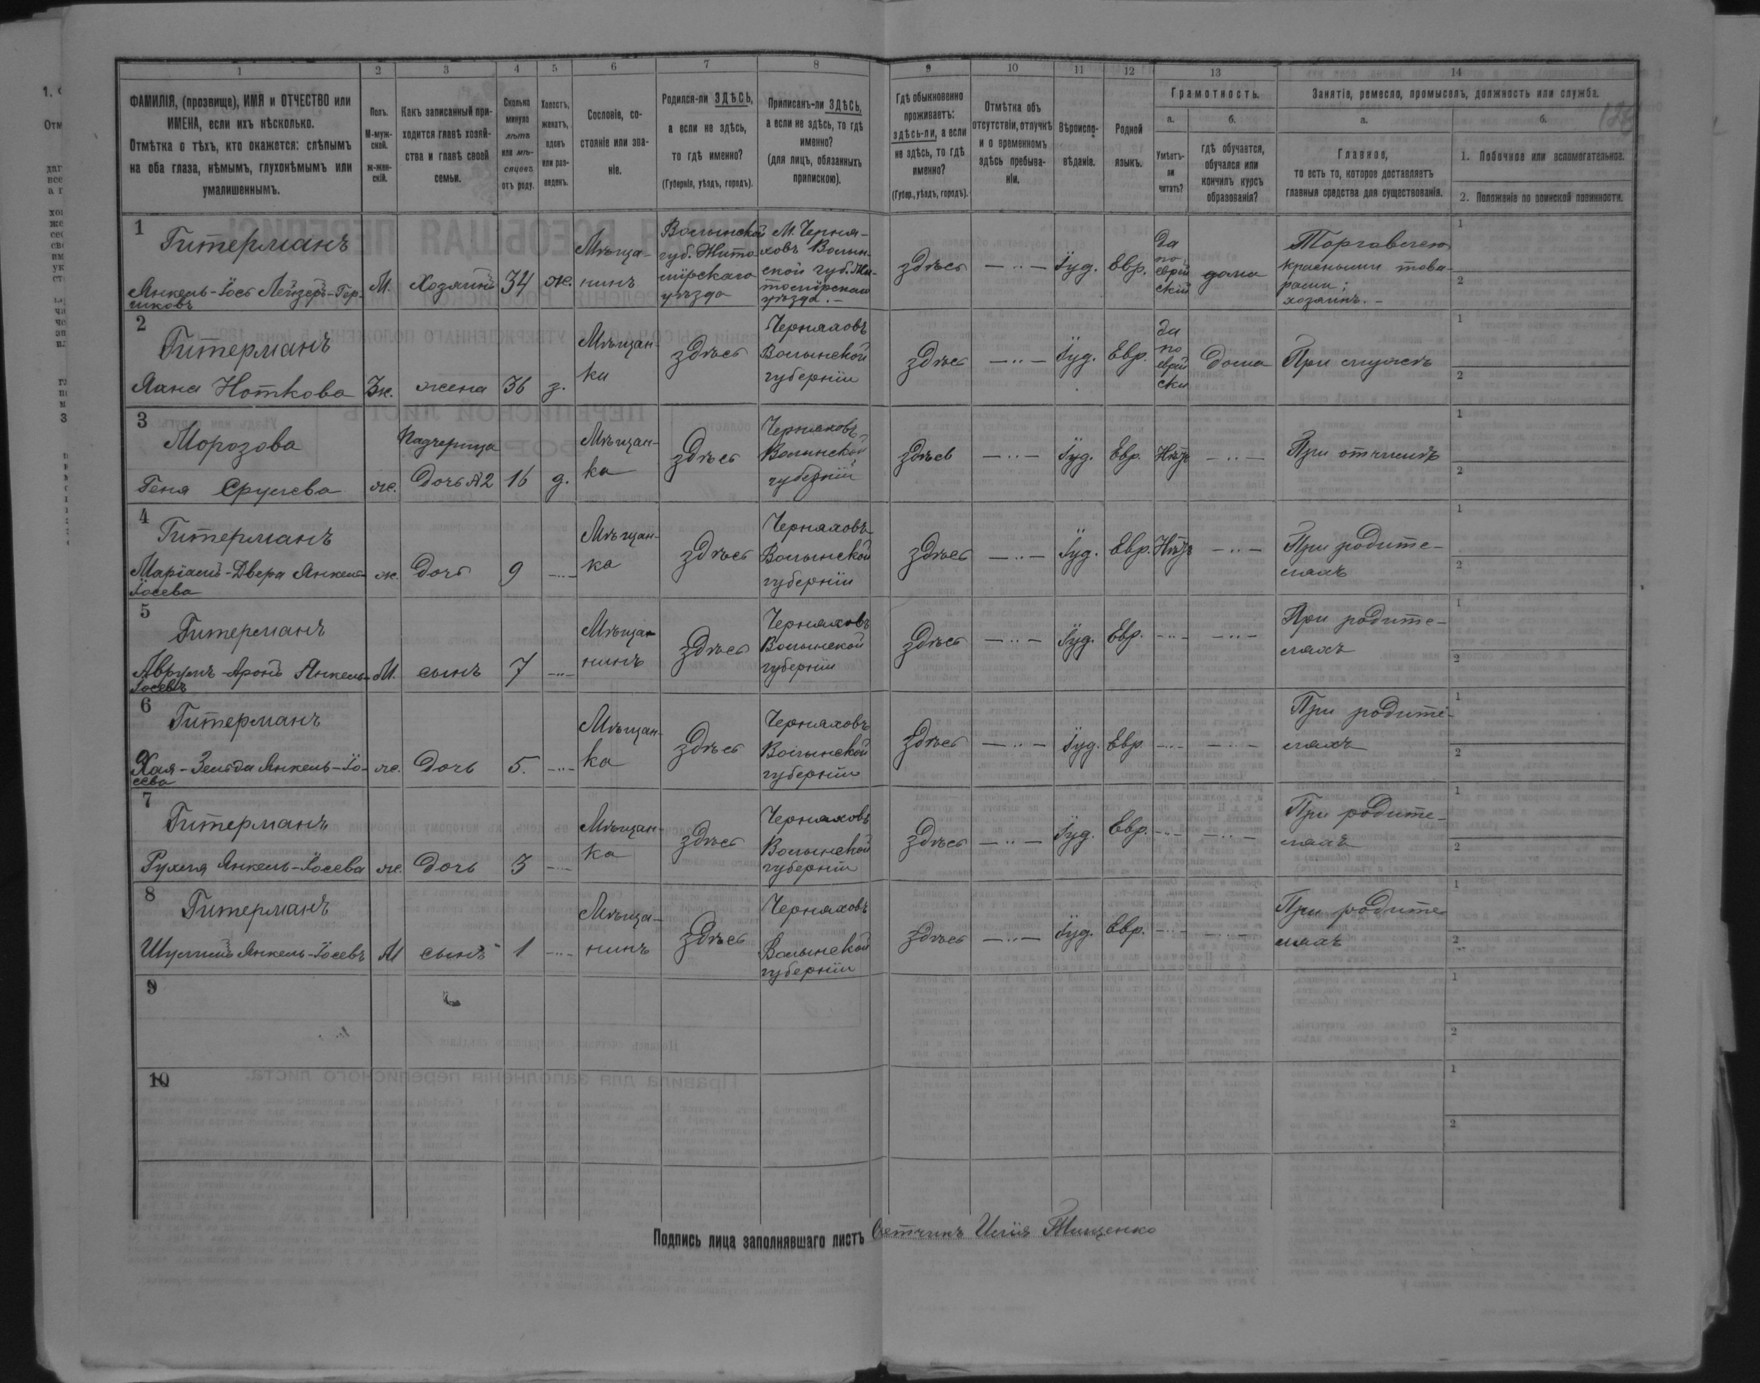 1 2 3 4 5 6 7 8 9 10 11 12 13 14
ФАМИЛІЯ, (прозвище), ИМЯ и ОТЧЕСТВО или ИМЕНА, если ихъ нѣсколько.
Отмѣтка о тѣхъ, кто окажется: слѣпымъ на оба глаза, нѣмымъ, глухонѣмымъ или умалишеннымъ.
Полъ. М-мужской. ж-женскій.
Какъ записанный приходится главѣ хозяйства и главѣ своей семьи.
Сколько минуло лѣтъ или мѣсяцевъ отъ роду.
Холостъ, женатъ, вдовъ или разведенъ.
Сословіе, состояніе или званіе.
Родился-ли ЗДѢСЬ, а если не здѣсь, то гдѣ именно?
(Губернія, уѣздъ, городъ).
Приписанъ-ли ЗДѢСЬ, а если не здѣсь, то гдѣ именно?
(для лицъ, обязанныхъ припискою).
Гдѣ обыкновенно проживаетъ: здѣсь-ли, а если не здѣсь, то гдѣ именно?
(Губер., уѣздъ, городъ).
Отмѣтка объ отсутствіи, отлучкѣ и о временномъ здѣсь пребываніи.
Вѣроисповѣданіе.
Родной языкъ.
Грамотность.
а. Умѣетъ-ли читать?
б. гдѣ обучается, обучался или кончилъ курсъ образованія?
Занятіе, ремесло, промыселъ, должность или служба.
а. Главное, то есть то, которое доставляетъ главныя средства для существованія.
б.
1. Побочное или вспомогательное.
2. Положеніе по воинской повинности.
1 Гитерманъ
Янкель-Іось Лейзеръ-Гершковъ М. Хозяинъ 34 ж. Мѣщанинъ Волынской губ. Житомірскаго уѣзда М. Черняховъ Волынской губ. Житомірскаго уѣзда. здѣсь — " — Іуд. Евр. Да по еврейскій дома Торговецъ красными товарами; хозяинъ.
2 Гитерманъ
Хана Ноткова Ж. жена 36 з. Мѣщанка здѣсь Черняховъ Волынской губерніи здѣсь — " — Іуд. Евр. Да по еврейски дома При мужѣ
3 Морозова
Геня Срулева ж. Падчерица Дочь №2 16 д. Мѣщанка здѣсь Черняховъ Волынской губерніи здѣсь — " — Іуд. Евр. Нѣтъ — " — При отчимѣ
4 Гитерманъ
Маріамъ-Двера Янкель-Іосева ж. Дочь 9 — Мѣщанка здѣсь Черняховъ Волынской губерніи здѣсь — " — Іуд. Евр. Нѣтъ — " — При родителяхъ
5 Гитерманъ
Аврумъ-Аронъ Янкель-Іосевъ М. сынъ 7 — Мѣщанинъ здѣсь Черняховъ Волынской губерніи здѣсь — " — Іуд. Евр. — " — При родителяхъ
6 Гитерманъ
Хая-Зельда Янкель-Іосева ж. Дочь 5. — Мѣщанка здѣсь Черняховъ Волынской губерніи здѣсь — " — Іуд. Евр. — " — При родителяхъ
7 Гитерманъ
Рухля Янкель-Іосева ж. Дочь 3 — Мѣщанка здѣсь Черняховъ Волынской губерніи здѣсь — " — Іуд. Евр. — " — При родителяхъ
8 Гитерманъ
Шулимъ Янкель-Іосевъ М сынъ 1 — Мѣщанинъ здѣсь Черняховъ Волынской губерніи здѣсь — " — Іуд. Евр. — " — При родителяхъ
9
10
Подпись лица заполнявшаго листъ Счетчикъ Тищенко